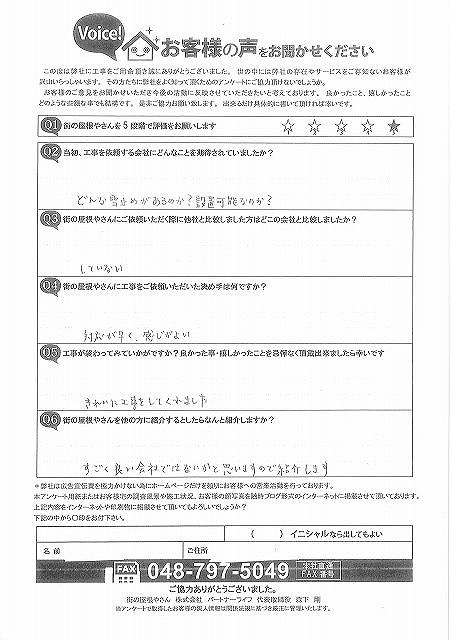 Voice!
お客様の声をお聞かせください
この度は弊社に工事をご用命頂き誠にありがとうございました。世の中には弊社の存在やサービスをご存知ないお客様が
沢山いらっしゃいます。その方たちに弊社をよく知って頂くためのアンケートにご協力頂けないでしょうか。
お客様のご意見をお聞かせいただき今後の活動に反映させていただきたいと考えております。良かったこと、嬉しかったこと
どのような些細な事でも結構です。是非ご協力お願い致します。出来るだけ具体的に書いて頂ければ幸いです。
Q1 街の屋根やさんを5段階で評価をお願いします ☆1 ☆2 ☆3 ☆4 ★5
Q2 当初、工事を依頼する会社にどんなことを期待されていましたか?
どんな雪止めがあるのか?設置可能なのか?
Q3 街の屋根やさんにご依頼いただく際に他社と比較しました方はどこの会社と比較しましたか?
していない
Q4 街の屋根やさんに工事をご依頼いただいた決め手は何ですか?
対応が早く、感じがよい
Q5 工事が終わってみていかがですか?良かった事・嬉しかったことを忌憚なく頂戴出来ましたら幸いです
きれいに工事をしてくれました
Q6 街の屋根やさんを他の方に紹介するとしたらなんと紹介しますか?
すごく良い会社ではないかと思いますので紹介します
*弊社は広告宣伝費を極力かけない為にホームページだけを頼りにお客様への営業活動を行っております。
本アンケート用紙またはお客様宅の調査風景や施工状況、お客様の顔写真を随時ブログ形式のインターネットに掲載させて頂いております。
上記内容をインターネットや印刷物に掲載させて頂いてもよろしいでしょうか?
下記の中から○印をお付下さい。
( ) イニシャルなら出してもよい
名前 ご住所
FAX 048-797-5049 FAX番号
ご協力ありがとうございました。
街の屋根やさん 株式会社 パートナーライフ 代表取締役 森下 剛
当アンケートで取得したお客様の個人情報は関係法規に基づき厳正に管理いたします。